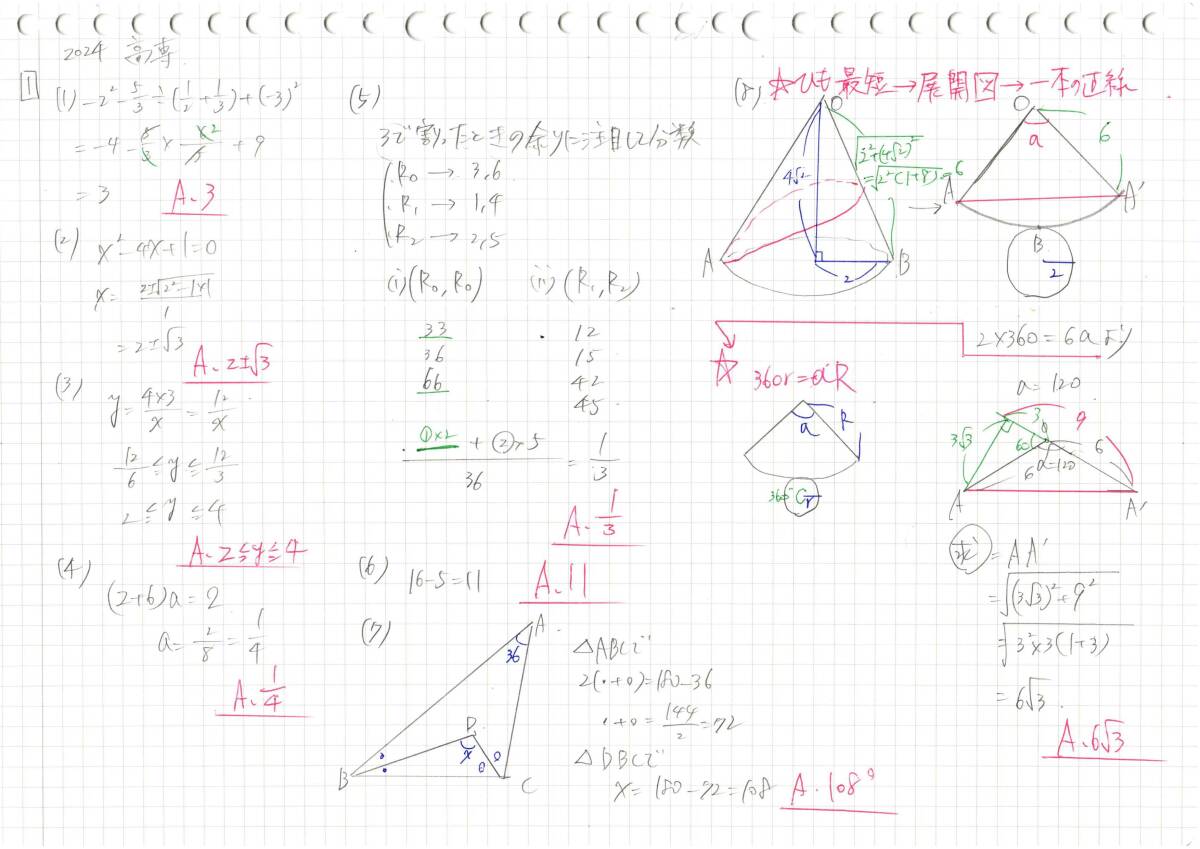 2024 高専
1
(1) -2² - 5/3 ÷ (1/2 + 1/3) + (-3)²
= -4 - 5/3 × 6 2/5 + 9
= 3 A. 3
(2) x² - 4x + 1 = 0
x = 2±√2²-1×1 / 1
= 2±√3
A. 2±√3
(3) y = 4×3/x = 12/x
12/6 ≦ y ≦ 12/3
2 ≦ y ≦ 4
A. 2≦y≦4
(4)
(2+6)a = 2
a = 2/8 = 1/4
A. 1/4
(5)
3で割ったときの余りに注目して分数
R₀ → 3,6
R₁ → 1,4
R₂ → 2,5
(i) (R₀, R₀) (ii) (R₁, R₂)
33 12
36 15
66 42
45
①×2 + ②×5 / 36 = 1/3
A. 1/3
(6) 16-5=11 A. 11
(7)
A
36
D
x
B
C
△ABCで
2(・+o)=180-36
・+o = 144/2 = 72
△DBCで
x = 180-72=108 A. 108°
(8) ☆ひも最短→展開図→一本の直線
O
4√2
√2²+(4√2)²
=√2²(1+8) =6
A
2
B
→
O
a
6
A
A'
B
2
2×360=6aより
a=120
☆ 360r=aR
a
R
360°
r
3√3
3
9
60
O
6
a=120
6
A
A'
求 = AA'
= √(3√3)²+9²
= √3²×3(1+3)
= 6√3
A. 6√3